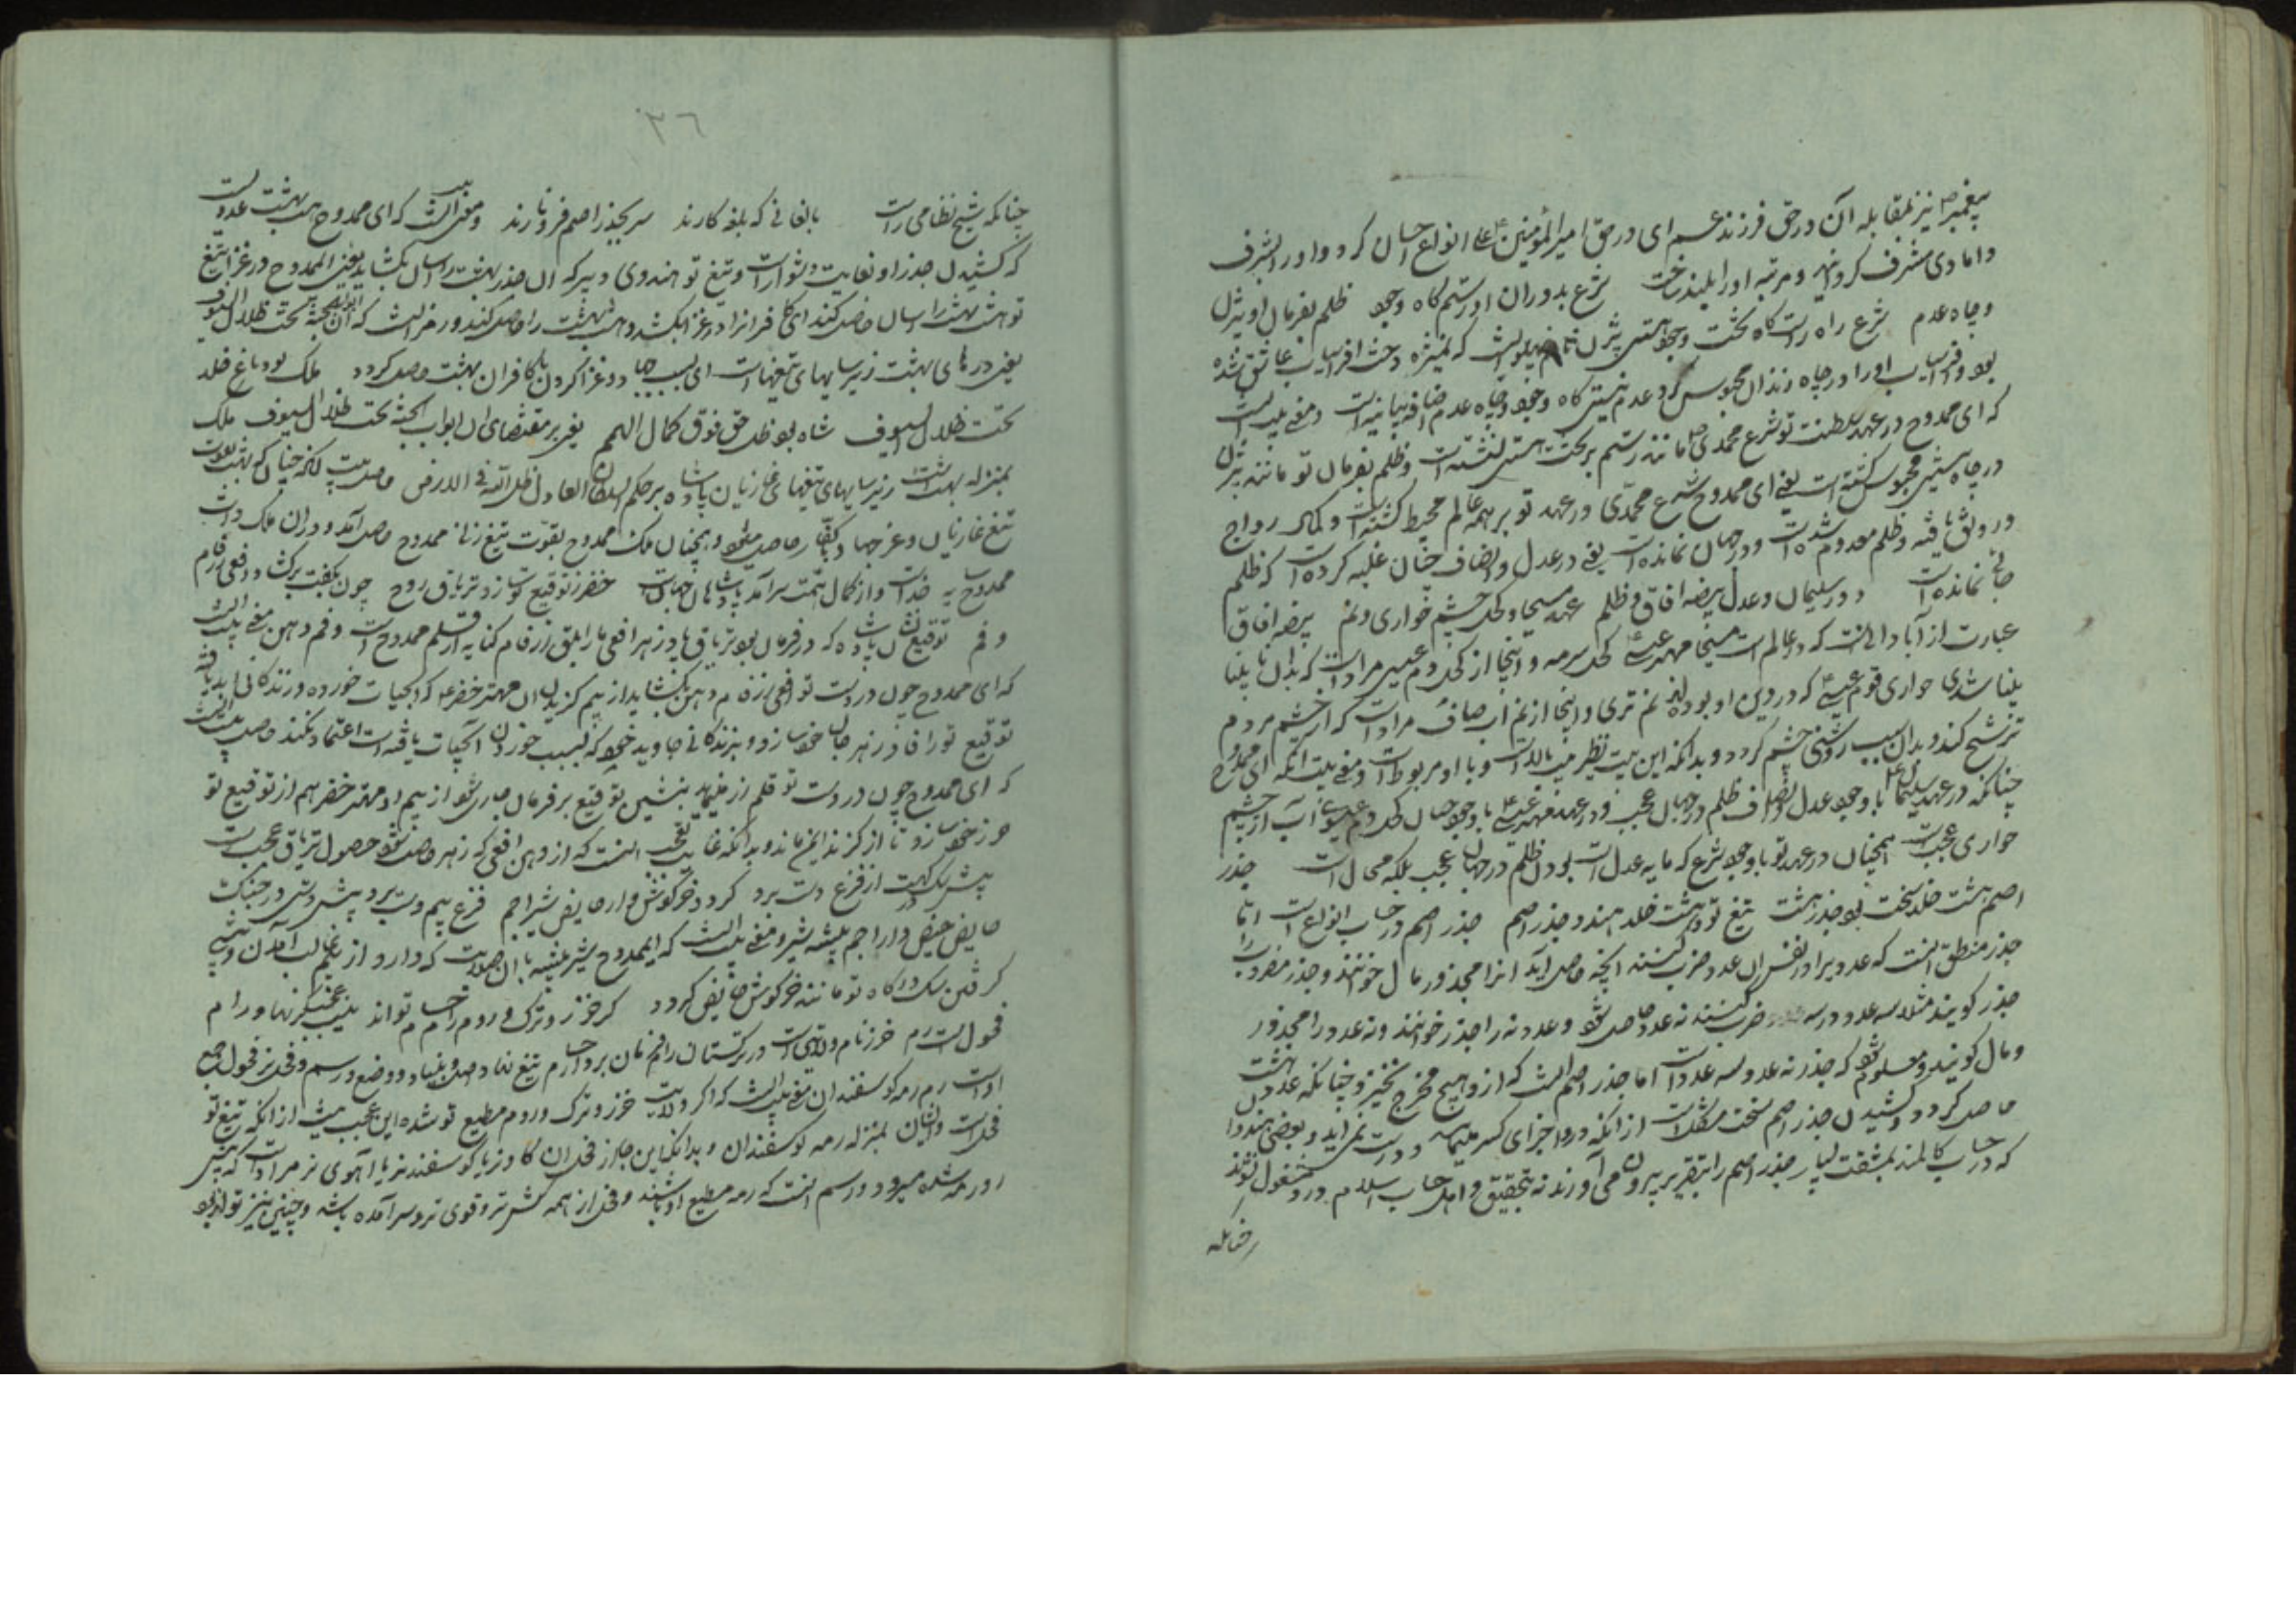 پیغمبر نیز بمقابله آن در حق فرزند عم ای در حق امیرالمؤمنین علی انواع احسان کرد و او را بشرف
دامادی مشرف کردانید و مرتبه او را بلند ساخت شرع بدوران او رستم کاه وجود ظلم بفرمان او بیژن
و چاه عدم شرع راه راست کاه تخت وجود هستی بیژن نام پهلوانیست که بمنیژه دخت افراسیاب عاشق شده
بود و افراسیاب او را در چاه زندان محبوس کرد عدم نیستی کاه وجود و چاه عدم اضافه بیانیه است و معنی بیت آنست
که ای ممدوح در عهد سلطنت تو شرع محمدی مانند رستم بر تخت هستی نشسته است و ظلم بفرمان تو مانند بیژن
در چاه نیستی محبوس کشته است یعنی ای ممدوح شرع محمدی در عهد تو بر همه عالم محیط کشته است و کمال رواج
و رونق یافته و ظلم معدوم شده است و در جهان نمانده است یعنی در عدل و انصاف چنان غلبه کرده است که ظلم
جائی نمانده است دور سلیمان و عدل بیضه آفاق و ظلم عهد مسیحا و کحل چشم حواری و نم بیضه آفاق
عبارت از آبادانی است که در عالم است مسیحا مهتر عیسی کحل سرمه و اینجا از کحل دم عیسی مراد است که بدان نابینا
بینا شدی حواری قوم عیسی که در دین او بودند نم تری و اینجا از نم آب صاف مراد است که از چشم مردم
ترشح کند و بدان سبب روشنی چشم کردد و بدانکه این بیت نظیر بیت بالا است و با او مربوط است و معنی بیت آنکه ای ممدوح
چنانکه در عهد سلیمان با وجود عدل و انصاف ظلم در جهان عجب و در عهد مهتر عیسی با وجود چنان کحل دم عیسی آب از چشم
حواری عجبست همچنان در عهد تو با وجود شرع که مایه عدل است بودن ظلم در جهان عجب بلکه محال است جذر
اصم هشت خلد سخت بود جذر هشت تیغ تو ده هشت خلد هند و جذر اصم جذر اصم در حساب انواع است اما
جذر منطق آنست که عددی را در نفس آن عدد ضرب کنند آنچه حاصل آید آنرا مجذور و مال خوانند و جذر مضروب را
جذر کویند مثلا سه عدد در سه ضرب کنند نه عدد حاصل شود و عدد نه را جذر خوانند و نه عدد را مجذور
و مال کویند و معلوم شود که جذر نه عدد سه عدد است اما جذر اصم آنست که از و هیچ مخرج نخیزد چنانکه عدد هشت
حاصل کردد و کشیدن جذر اصم سخت مشکل است از آنکه در و اجزای کسر میماند و درست نمی آید و بعضی هندوان
که در حساب کاملند بمشقت بسیار جذر اصم را بتقریر بیرون می آورند نه بتحقیق و اهل حساب اسلام درو مشغول نشوند
چنانکه
۳۶
چنانکه شیخ نظامی راست بالغانی که بلغه کارند سر بجذر اصم فرو نارند و معنی بیت آنست که ای ممدوح هشت بهشت عددیست
که کشیدن جذر او بغایت دشوار است و تیغ تو هندوی دبیر که آن جذر هشت را آسان بکشاید یعنی ای ممدوح در غزا تیغ
تو هشت بهشت را آسان حاصل کند ای کافرانرا در غزا بکشد و هشت بهشت را حاصل کند و رمز آنست که ان ابواب الجنة تحت ظلال السیوف
یعنی درهای بهشت زیر سایهای تیغهاست ای بسبب جهاد و غزا کردن با کافران بهشت حاصل کردد ملک بود باغ خلد
تحت ظلال السیوف شاه بود ظل حق فوق کمال الهمم یعنی بر مقتضای ان ابواب الجنة تحت ظلال السیوف ملک
بمنزله بهشت است زیر سایهای تیغهای غازیان پادشاه بر حکم السلطان العادل ظل الله فی الارض حاصل بیت آنکه چنانکه بهشت بدولت
تیغ غازیان و غزا و جهاد با کفار حاصل میشود همچنان ملک ممدوح بقوت تیغ زنان ممدوح حاصل آمد و در آن ملک ذات
ممدوح سایه خداست و از کمال همت سرآمد پادشاهان جهانست خضر ز توقیع تو سازد تریاق روح چون بکفت برکشاد افعی ارقم
و فم توقیع نشان پادشاه که در فرمان بود تریاق پادزهر افعی مار ابلق ارقام کنایه از قلم ممدوح است و فم دهن معنی بیت آنست
که ای ممدوح چون در دست تو افعی ارزق دهن بکشاید از بیم کزیدن آن مهتر خضر که آبحیات خورده و زندکانی ابد یافته
توقیع ترا فادزهر جان خود سازد و بزندکانی جاوید خود که بسبب خوردن آبحیات یافته است اعتماد نکند حاصل بیت آنست
که ای ممدوح چون در دست تو قلم زر نیام بنشین توقیع بر فرمان جاری شود از بیم او مهتر خضر هم از توقیع تو
حرز خود سازد تا از کزند ایمن ماند و بدانکه غایت تعجب آنست که از دهن افعی که زهر حاصل شود حصول تریاق عجب است
پیش سک کهت از فزع دست برد کردد خرکوش وار حایض شیر اجم فزع بیم دست برد پیش دستی در جنک
حایض حیض دار اجم بیشه شیر و معنی بیت آنست که ای ممدوح شیر بیشه با آن صلابت که دارد از بیم غالب آمدن و پیشی
کرفتن سک درکاه تو مانند خرکوش حایض کردد کر خزر و ترک و روم رام حسام تواند نیست عجب کر نهاد رام
فحول است رم خزر نام ولایتی است در ترکستان رام فرمان بردار حسام تیغ نهاد اصل و بنیاد و وضع و رسم و فحل نر فحول جمع
اوست رم رمه کوسفندان معنی بیت آنست که اکر ولایت خزر و ترک و روم مطیع تو شده این عجب نیست از آنکه تیغ تو
فحل است و ایشان بمنزله رمه کوسفندان و بدانکه اینجا از فحل آن کاو نر یا کوسفند نر یا آهوی نر مراد است که پیش
رو رمه شده میرود و رسم آنست که رمه مطیع او باشند و فحل از همه کش تر و قوی تر و سرآمده باشد و چنین نیز تواند بود